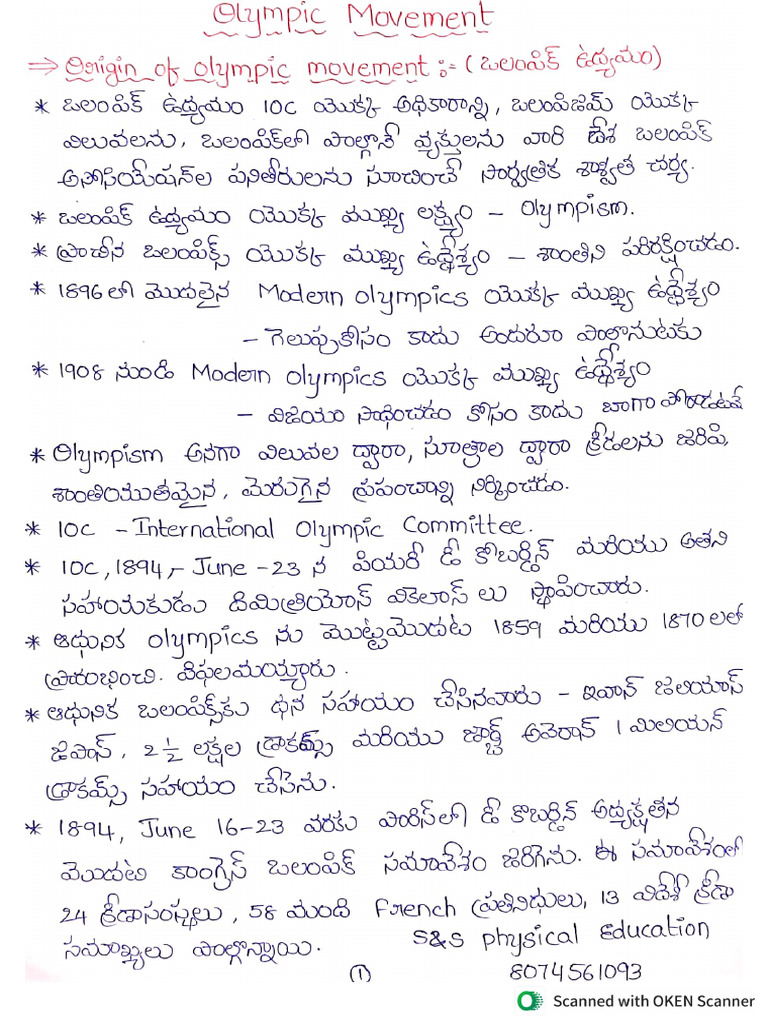 Olympic Movement
⇒ Origin of olympic movement :- (ఒలంపిక్ ఉద్యమం)
* ఒలంపిక్ ఉద్యమం IOC యొక్క అధికారాన్ని, ఒలంపిజమ్ యొక్క
విలువలను, ఒలంపిక్‌లో పాల్గొనే వ్యక్తులను వారి దేశ ఒలంపిక్
అసోసియేషన్‌ల పనితీరులను సూచించే సార్వత్రిక శాశ్వత చర్య.
* ఒలంపిక్ ఉద్యమం యొక్క ముఖ్య లక్ష్యం - Olympism.
* ప్రాచీన ఒలంపిక్స్ యొక్క ముఖ్య ఉద్దేశ్యం - శాంతిని పరిరక్షించడం.
* 1896 లో మొదలైన Modern olympics యొక్క ముఖ్య ఉద్దేశ్యం
- గెలుపుకోసం కాదు అందరూ పాల్గొనుటకు
* 1908 నుండి Modern olympics యొక్క ముఖ్య ఉద్దేశ్యం
- విజయం సాధించడం కోసం కాదు బాగా పోరాడటమే
* Olympism అనగా విలువల ద్వారా, సూత్రాల ద్వారా క్రీడలను జరిపి,
శాంతియుతమైన, మెరుగైన ప్రపంచాన్ని నిర్మించడం.
* IOC - International Olympic Committee.
* IOC, 1894, - June - 23 న పియరీ డీ కోబర్డిన్ మరియు అతని
సహాయకుడు డిమిత్రియోస్ వికెలాస్ లు స్థాపించారు.
* ఆధునిక olympics ను మొట్టమొదట 1859 మరియు 1870 లలో
ప్రారంభించి. విఫలమయ్యారు.
* ఆధునిక ఒలంపిక్స్‌కు ధన సహాయం చేసినవారు - ఇవాన్ జలియాస్
జెపాస్, 2 ½ లక్షల డ్రాకమ్స్ మరియు జార్జ్ అవెరాన్ 1 మిలియన్
డ్రాకమ్స్ సహాయం చేసెను.
* 1894, June 16-23 వరకు పారిస్‌లో డీ కొబర్డిన్ అధ్యక్షతన
మొదటి కాంగ్రెస్ ఒలంపిక్ సమావేశం జరిగెను. ఈ సమావేశంలో
24 క్రీడాసంస్థలు, 58 మంది French ప్రతినిధులు, 13 విదేశీ క్రీడా
సమాఖ్యలు పాల్గొన్నాయి.
S&S physical Education
(1)
8074561093
Scanned with OKEN Scanner